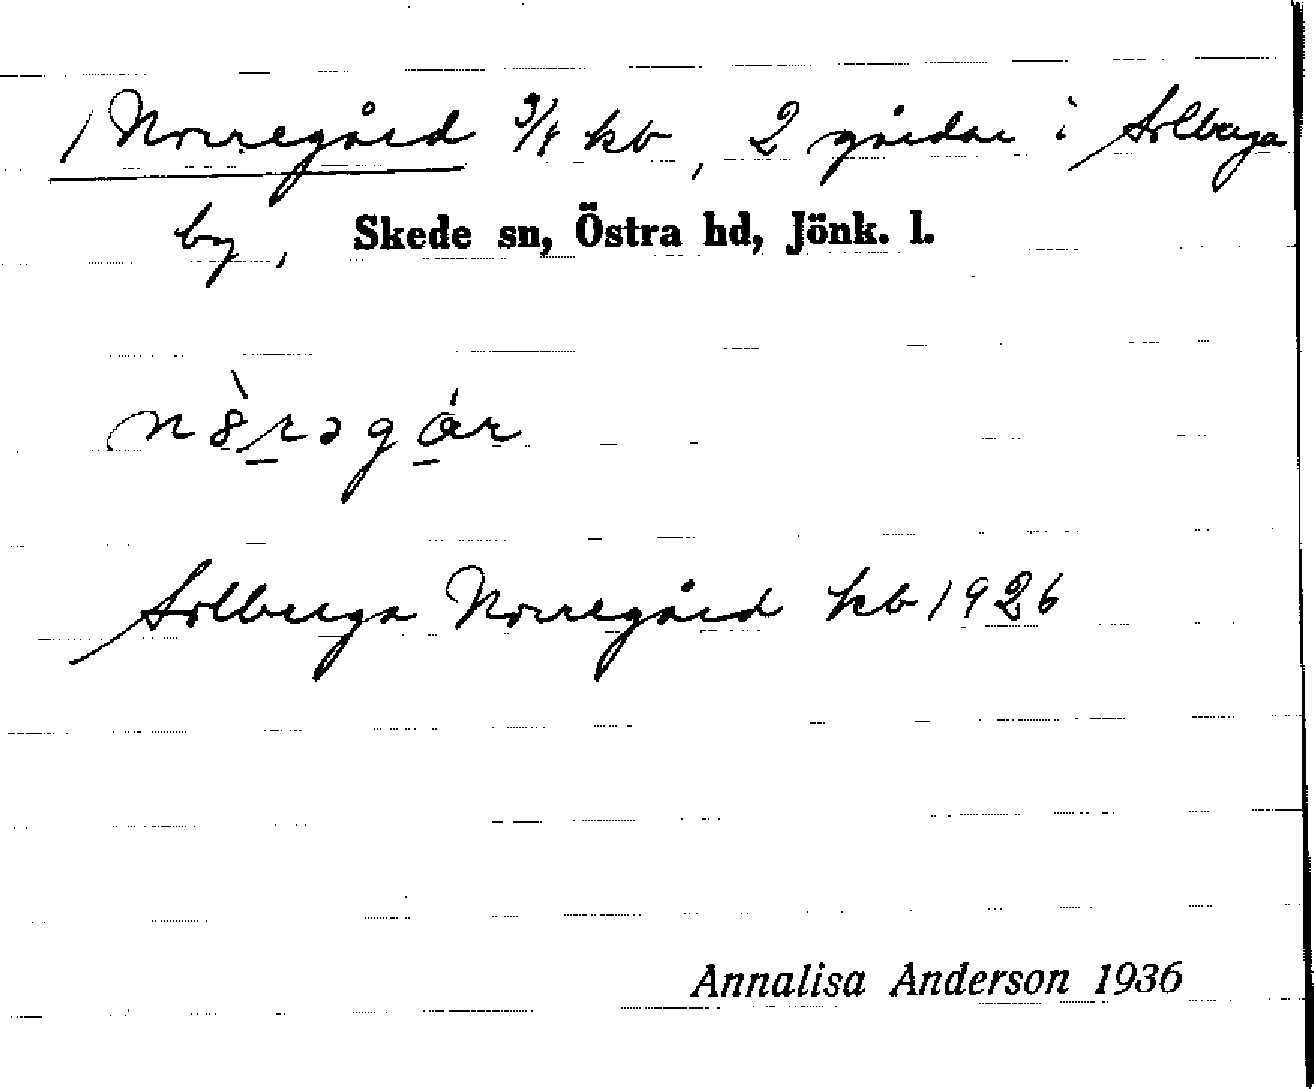 1 Norregård 3/4 kb, 2 gårdar i Solberga
by, Skede sn, Östra hd, Jönk. l.
nò̱rəgár
Solberga Norregård kb 1926
Annalisa Anderson 1936